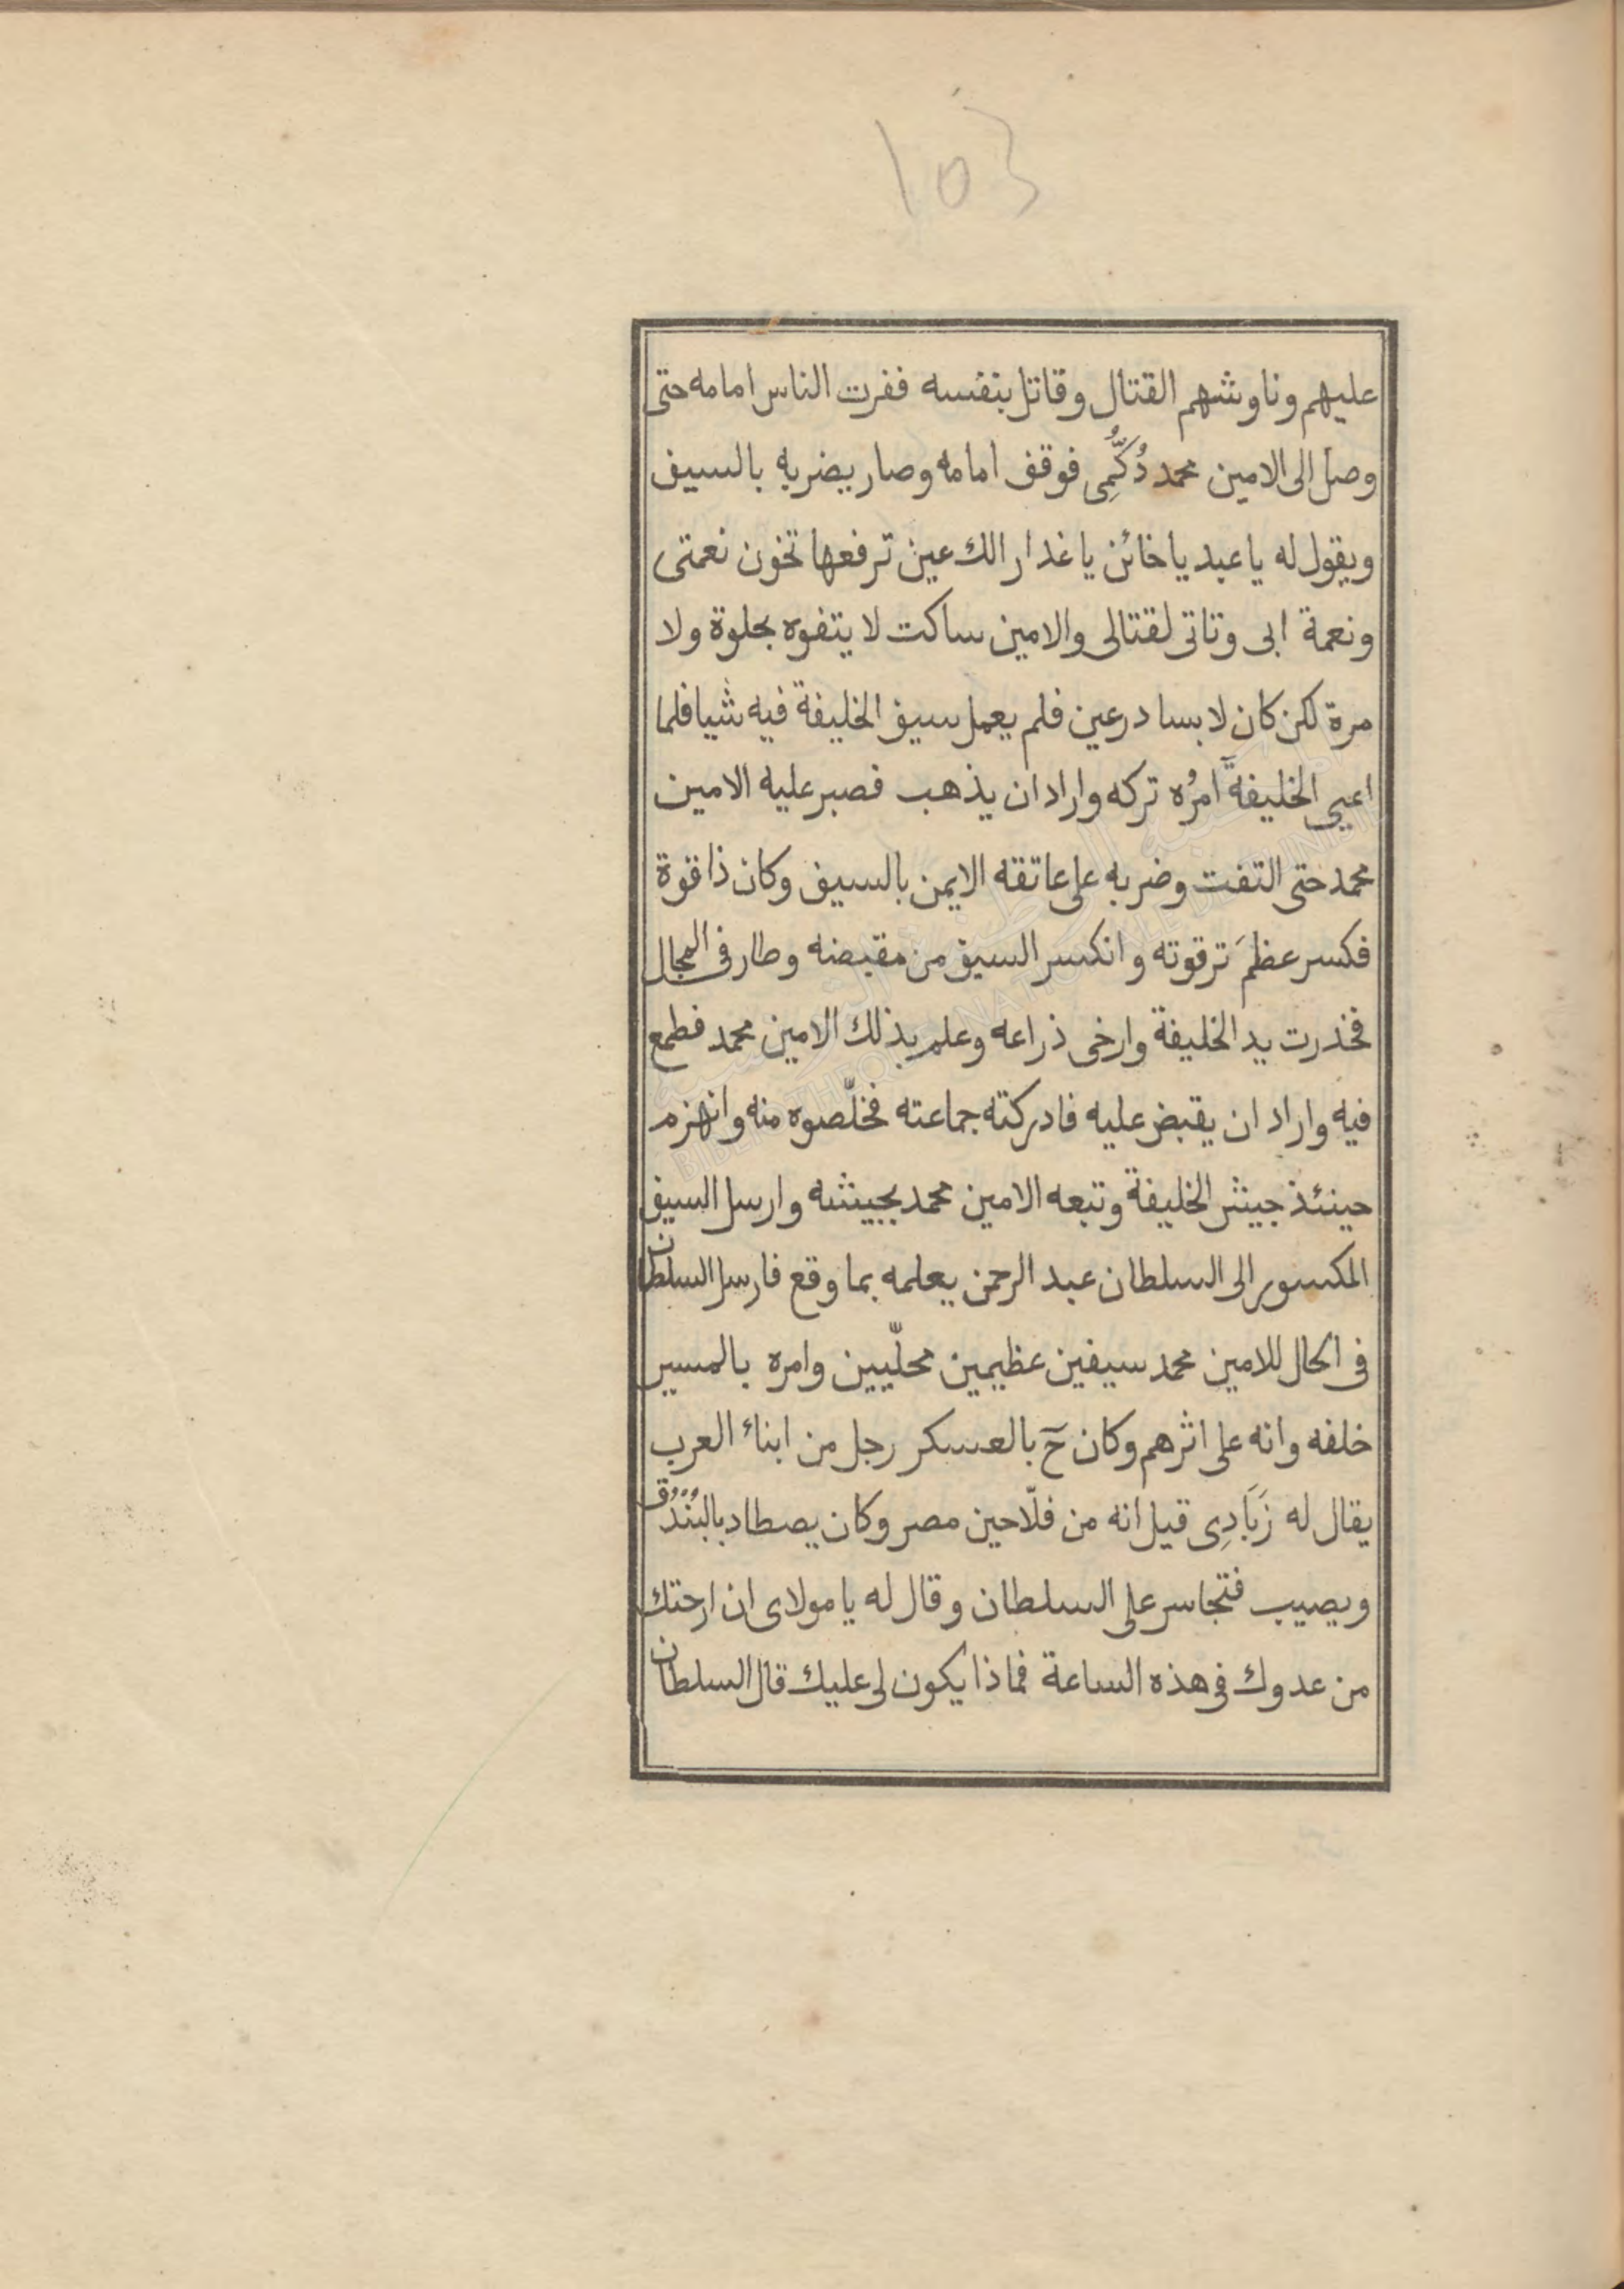 103
عليهم وناوشهم القتال وقاتل بنفسه ففرت الناس امامه حتى
وصل الى الامين محمد دُكَّمِى فوقف امامه وصار يضربه بالسيف
ويقول له يا عبد يا خائن يا غدار الك عين ترفعها تخون نعمتى
ونعمة ابى وتاتى لقتالى والامين ساكت لا يتفوه بحلوة ولا
مرة لكن كان لابسا درعين فلم يعمل سيف الخليفة فيه شيا فلما
اعيى الخليفةَ امرُه تركه واراد ان يذهب فصبر عليه الامين
محمد حتى التفت وضربه على عاتقه الايمن بالسيف وكان ذا قوة
فكسر عظمَ ترقوته وانكسر السيف من مقبضه وطار فى المجال
فخذرت يد الخليفة وارخى ذراعه وعلم بذلك الامين محمد فطمع
فيه واراد ان يقبض عليه فادركته جماعته فخلّصوه منه وانهزم
حينئذ جيش الخليفة وتبعه الامين محمد بجيشه وارسل السيف
المكسور الى السلطان عبد الرحمن يعلمه بما وقع فارسل السلطان
فى الحال للامين محمد سيفين عظيمين محلّيين وامره بالمسير
خلفه وانه على اثرهم وكان حَ بالعسكر رجل من ابناء العرب
يقال له زَبَادِى قيل انه من فلّاحين مصر وكان يصطاد بالبُنْدُق
ويصيب فتجاسر على السلطان وقال له يا مولاى ان ارحتك
من عدوك فى هذه الساعة فماذا يكون لى عليك قال السلطان
BIBLIOTHEQUE NATIONALE DE TUNISIE